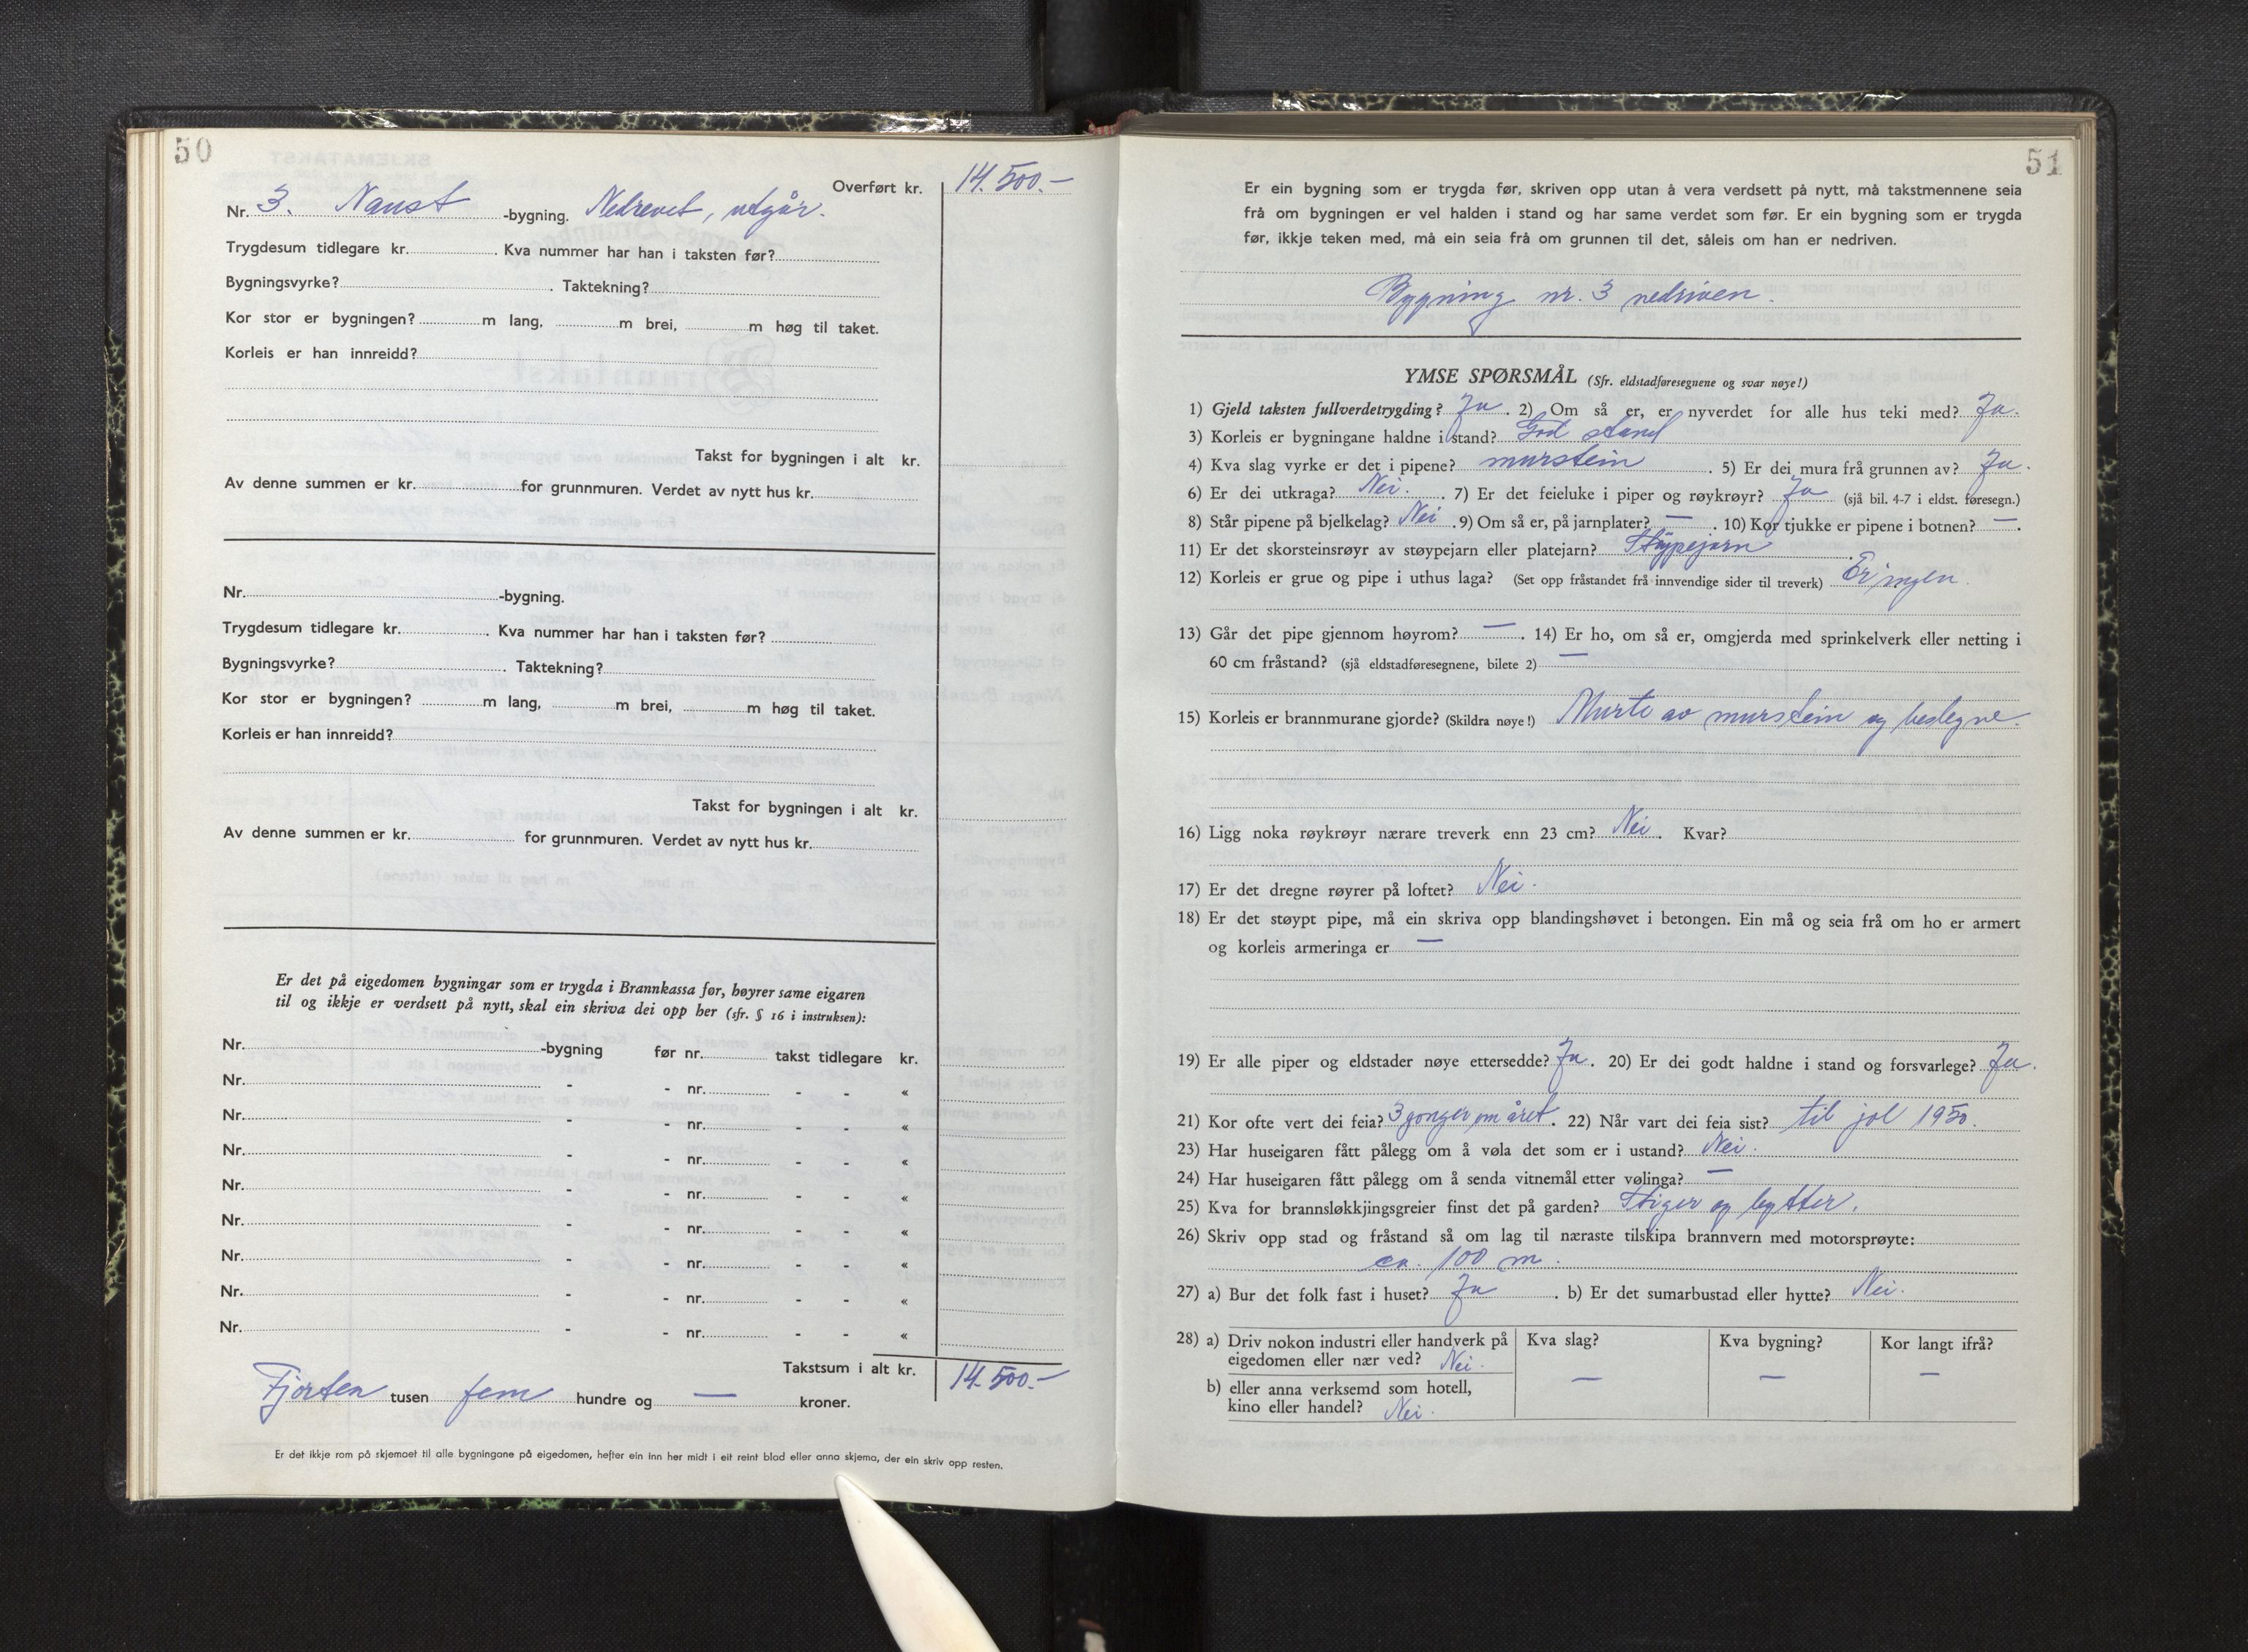 50
Overført kr. 14.500.-
Nr. 3. Naust -bygning. Nedrevet, utgår.
Trygdesum tidlegare kr. . Kva nummer har han i taksten før?
Bygningsvyrke? . Taktekning?
Kor stor er bygningen? m lang, m brei, m høg til taket.
Korleis er han innreidd?
Takst for bygningen i alt kr.
Av denne summen er kr. for grunnmuren. Verdet av nytt hus kr.
Nr. -bygning.
Trygdesum tidlegare kr. . Kva nummer har han i taksten før?
Bygningsvyrke? . Taktekning?
Kor stor er bygningen? m lang, m brei, m høg til taket.
Korleis er han innreidd?
Takst for bygningen i alt kr.
Av denne summen er kr. for grunnmuren. Verdet av nytt hus kr.
Er det på eigedomen bygningar som er trygda i Brannkassa før, høyrer same eigaren
til og ikkje er verdsett på nytt, skal ein skriva dei opp her (sfr. § 16 i instruksen):
Nr. -bygning før nr. takst tidlegare kr.
Nr. - - nr. - - «
Nr. - - nr. - - «
Nr. - - nr. - - «
Nr. - - nr. - - «
Nr. - - nr. - - «
Nr. - - nr. - - «
Nr. - - nr. - - «
Nr. - - nr. - - «
Takstsum i alt kr. 14.500.-
Fjorten tusen fem hundre og — kroner.
Er det ikkje rom på skjemaet til alle bygningane på eigedomen, hefter ein inn her midt i eit reint blad eller anna skjema, der ein skriv opp resten.
51
Er ein bygning som er trygda før, skriven opp utan å vera verdsett på nytt, må takstmennene seia
frå om bygningen er vel halden i stand og har same verdet som før. Er ein bygning som er trygda
før, ikkje teken med, må ein seia frå om grunnen til det, såleis om han er nedriven.
Bygning nr. 3 nedriven.
YMSE SPØRSMÅL (Sfr. eldstadføresegnene og svar nøye!)
1) Gjeld taksten fullverdetrygding? Ja. 2) Om så er, er nyverdet for alle hus teki med? Ja.
3) Korleis er bygningane haldne i stand? God stand
4) Kva slag vyrke er det i pipene? murstein . 5) Er dei mura frå grunnen av? Ja.
6) Er dei utkraga? Nei. . 7) Er det feieluke i piper og røykrøyr? Ja (sjå bil. 4-7 i eldst. føresegn.)
8) Står pipene på bjelkelag? Nei . 9) Om så er, på jarnplater? — . 10) Kor tjukke er pipene i botnen? — .
11) Er det skorsteinsrøyr av støypejarn eller platejarn? Støypejarn
12) Korleis er grue og pipe i uthus laga? (Set opp fråstandet frå innvendige sider til treverk) Er ingen.
13) Går det pipe gjennom høyrom? — . 14) Er ho, om så er, omgjerda med sprinkelverk eller netting i
60 cm fråstand? (sjå eldstadføresegnene, bilete 2) —
15) Korleis er brannmurane gjorde? (Skildra nøye!) Murte av murstein og beslegne.
16) Ligg noka røykrøyr nærare treverk enn 23 cm? Nei. Kvar?
17) Er det dregne røyrer på loftet? Nei.
18) Er det støypt pipe, må ein skriva opp blandingshøvet i betongen. Ein må og seia frå om ho er armert
og korleis armeringa er —
19) Er alle piper og eldstader nøye ettersedde? Ja. 20) Er dei godt haldne i stand og forsvarlege? Ja.
21) Kor ofte vert dei feia? 3 gonger om året. 22) Når vart dei feia sist? til jol 1950.
23) Har huseigaren fått pålegg om å vøla det som er i ustand? Nei.
24) Har huseigaren fått pålegg om å senda vitnemål etter vølinga? —
25) Kva for brannsløkkjingsgreier finst det på garden? Stiger og bytter.
26) Skriv opp stad og fråstand så om lag til næraste tilskipa brannvern med motorsprøyte:
ca. 100 m.
27) a) Bur det folk fast i huset? Ja . b) Er det sumarbustad eller hytte? Nei.
28) a) Driv nokon industri eller handverk på Kva slag? Kva bygning? Kor langt ifrå?
eigedomen eller nær ved? Nei.
— — —
b) eller anna verksemd som hotell,
kino eller handel? Nei.